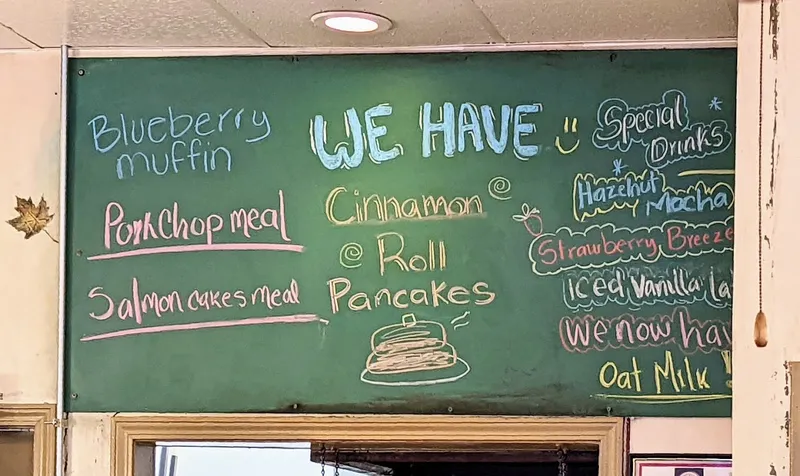 Blueberry
muffin
Porkchop meal
Salmon cakes meal
WE HAVE
Cinnamon
Roll
Pancakes
Special
Drinks
Hazelnut
Macha
Strawberry Breeze
iced Vanilla La
We now hav
Oat Milk!